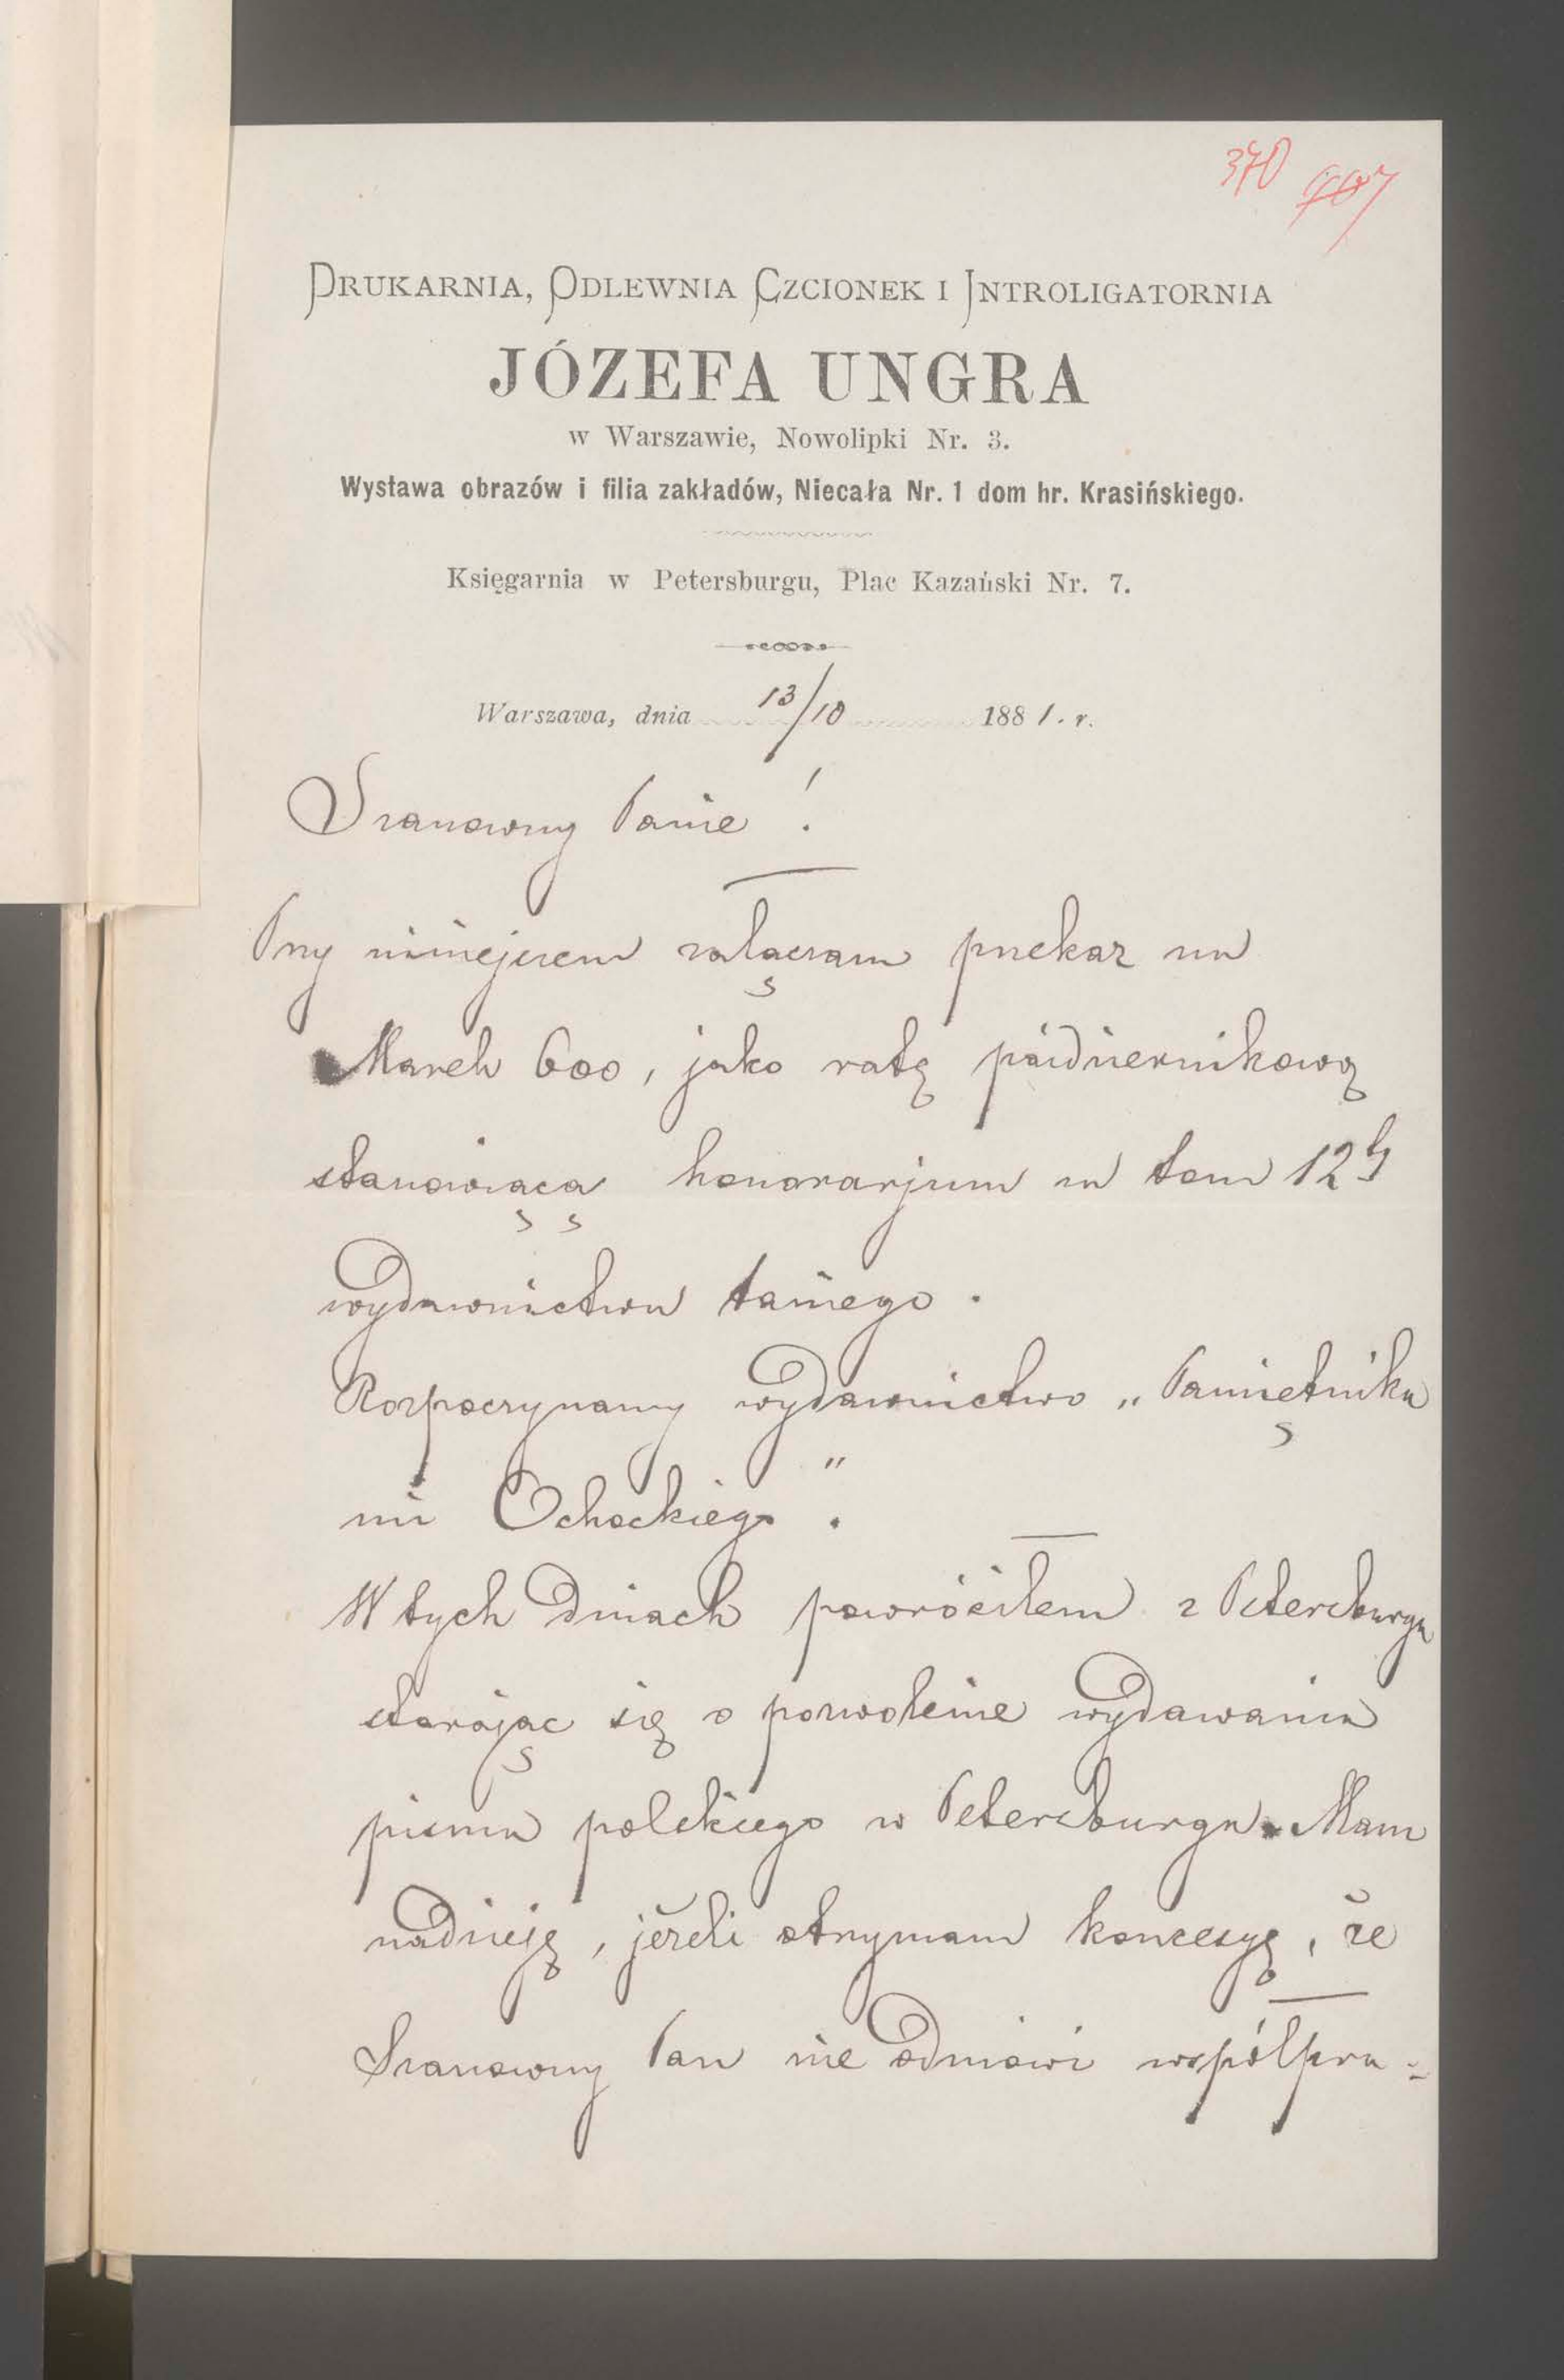 370
DRUKARNIA, ODLEWNIA CZCIONEK I INTROLIGATORNIA
JÓZEFA UNGRA
w Warszawie, Nowolipki Nr. 3.
Wystawa obrazów i filia zakładów, Niecała Nr. 1 dom hr. Krasińskiego.
Księgarnia w Petersburgu, Plac Kazański Nr. 7.
Warszawa, dnia 13/10 1881. r.
Szanowny Panie!
Przy niniejszem załączam przekaz na
Marek 600, jako ratę październikową
stanowiącą honorarjum za tom 12ty
wydawnictwa taniego.
Rozpoczynamy wydawnictwo „Pamiętnika
mi Ochockiego".
W tych dniach powróciłem z Petersburga
starając się o pozwolenie wydawania
pisma polskiego w Petersburgu. Mam
nadzieję, jeżeli otrzymam koncesyę, że
Szanowny Pan nie odmówi współpra=